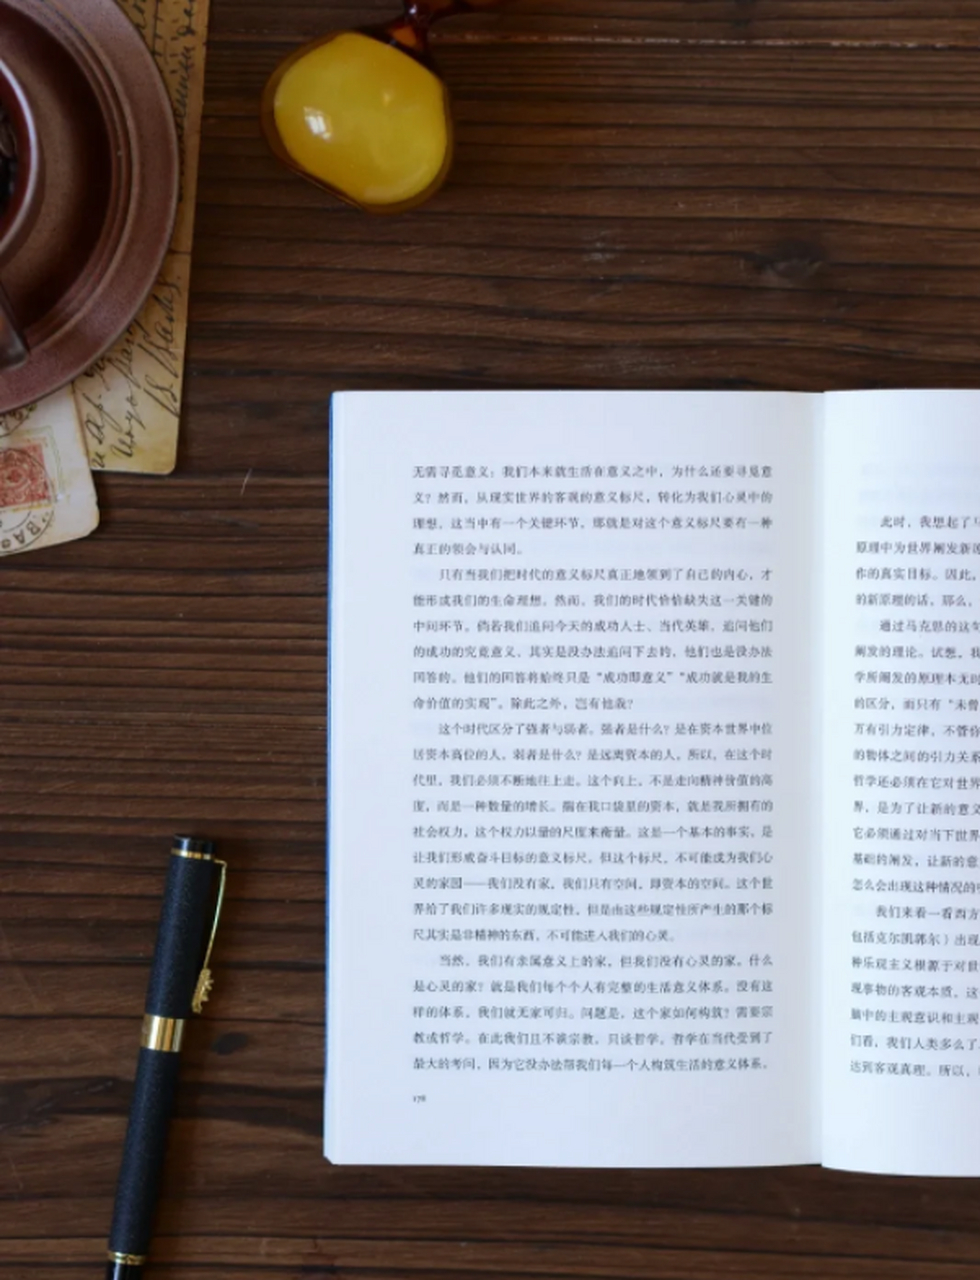 无需寻觅意义；我们本来就生活在意义之中，为什么还要寻觅意
义？然而，从现实世界的客观的意义标尺，转化为我们心灵中的
理想，这当中有一个关键环节，那就是对这个意义标尺要有一种
真正的领会与认同。
只有当我们把时代的意义标尺真正地领到了自己的内心，才
能形成我们的生命理想。然而，我们的时代恰恰缺失这一关键的
中间环节。倘若我们追问今天的成功人士、当代英雄，追问他们
的成功的究竟意义，其实是没办法追问下去的，他们也是没办法
回答的。他们的回答将始终只是“成功即意义”“成功就是我的生
命价值的实现”。除此之外，岂有他哉？
这个时代区分了强者与弱者。强者是什么？是在资本世界中位
居资本高位的人，弱者是什么？是远离资本的人。所以，在这个时
代里，我们必须不断地往上走。这个向上，不是走向精神价值的高
度，而是一种数量的增长。揣在我口袋里的资本，就是我所拥有的
社会权力，这个权力以量的尺度来衡量。这是一个基本的事实，是
让我们形成奋斗目标的意义标尺。但这个标尺，不可能成为我们心
灵的家园——我们没有家，我们只有空间，即资本的空间。这个世
界给了我们许多现实的规定性，但是由这些规定性所产生的那个标
尺其实是非精神的东西，不可能进入我们的心灵。
当然，我们有亲属意义上的家，但我们没有心灵的家。什么
是心灵的家？就是我们每个个人有完整的生活意义体系。没有这
样的体系，我们就无家可归。问题是，这个家如何构筑？需要宗
教或哲学。在此我们且不谈宗教，只谈哲学。哲学在当代受到了
最大的考问，因为它没办法帮我们每一个人构筑生活的意义体系。
178
此时，我想起了马
原理中为世界阐发新原
作的真实目标。因此，
的新原理的话，那么，
通过马克思的这句
阐发的理论。试想，我
学所阐发的原理本无时
的区分，而只有“未曾
万有引力定律，不管你
的物体之间的引力关系
哲学还必须在它对世界
界，是为了让新的意义
它必须通过对当下世界
基础的阐发，让新的意
怎么会出现这种情况的
我们来看一看西方
包括克尔凯郭尔）出现
种乐观主义根源于对世
现事物的客观本质，这
脑中的主观意识和主观
们看，我们人类多么了
达到客观真理。所以，